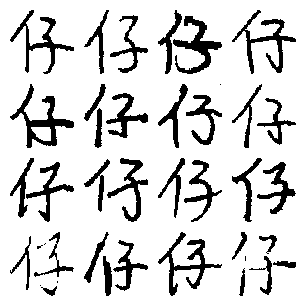 仔仔仔仔
仔仔仔仔
仔仔仔仔
仔仔仔仔